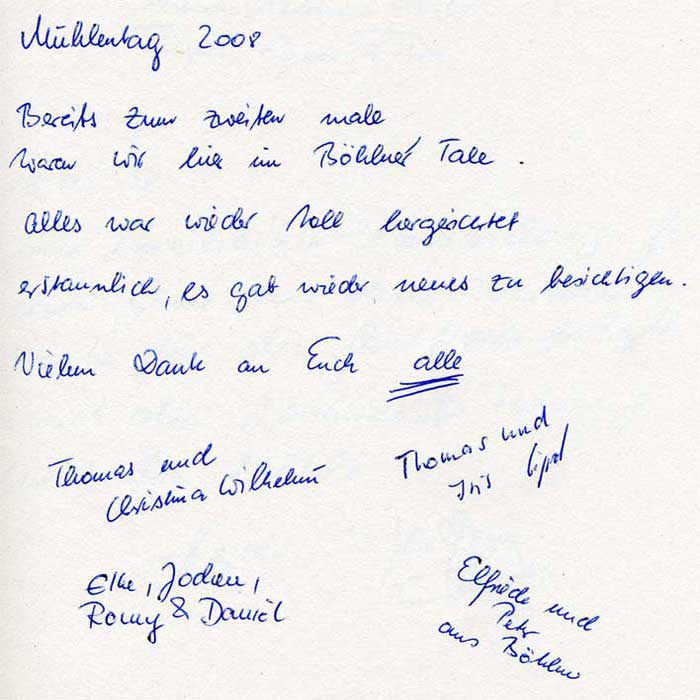 Mühlentag 2008
Bereits zum zweiten male
waren wir hier im Böhlner Tale .
alles war wieder toll hergerichtet
erstaunlich, es gab wieder neues zu besichtigen.
Vielen Dank an Euch alle
Thomas und
Christina Wilhelm
Thomas und
Iris
Elke, Jochen,
Romy & Daniel
Elfriede und
Peter
aus Böhlen